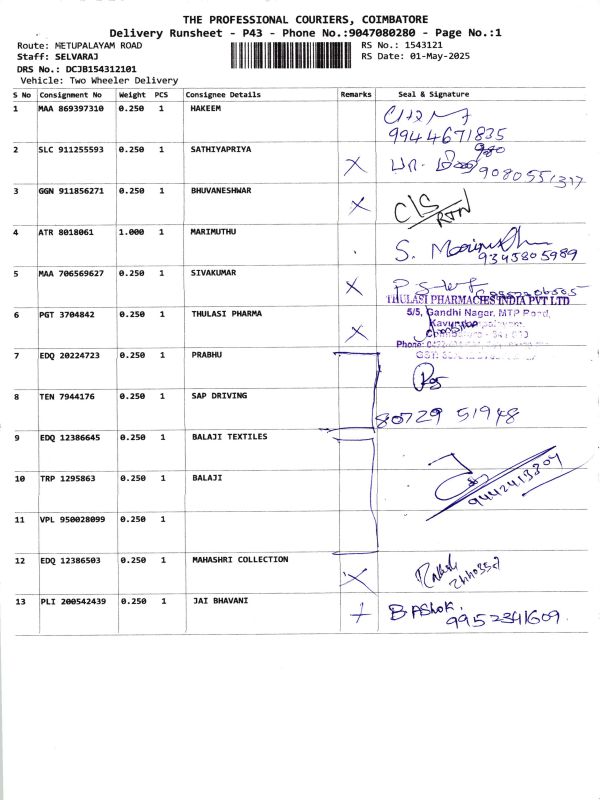 THE PROFESSIONAL COURIERS, COIMBATORE
Delivery Runsheet - P43 - Phone No.:9047080280 - Page No.:1
Route: METUPALAYAM ROAD RS No.: 1543121
Staff: SELVARAJ RS Date: 01-May-2025
DRS No.: DCJB154312101
Vehicle: Two Wheeler Delivery
S No Consignment No Weight PCS Consignee Details Remarks Seal & Signature
1 MAA 869397310 0.250 1 HAKEEM
9944671835
2 SLC 911255593 0.250 1 SATHIYAPRIYA X
9080551317
3 GGN 911856271 0.250 1 BHUVANESHWAR X C/S
RTN
4 ATR 8018061 1.000 1 MARIMUTHU S.
9345805989
5 MAA 706569627 0.250 1 SIVAKUMAR X
THULASI PHARMACIES INDIA PVT LTD
6 PGT 3704842 0.250 1 THULASI PHARMA X 5/5, Gandhi Nagar, MTP Road,
Phone:
7 EDQ 20224723 0.250 1 PRABHU
8 TEN 7944176 0.250 1 SAP DRIVING
80729 51948
9 EDQ 12386645 0.250 1 BALAJI TEXTILES
10 TRP 1295863 0.250 1 BALAJI
9442413804
11 VPL 950028099 0.250 1
12 EDQ 12386503 0.250 1 MAHASHRI COLLECTION X
13 PLI 200542439 0.250 1 JAI BHAVANI + B ASHOK.
9952341609